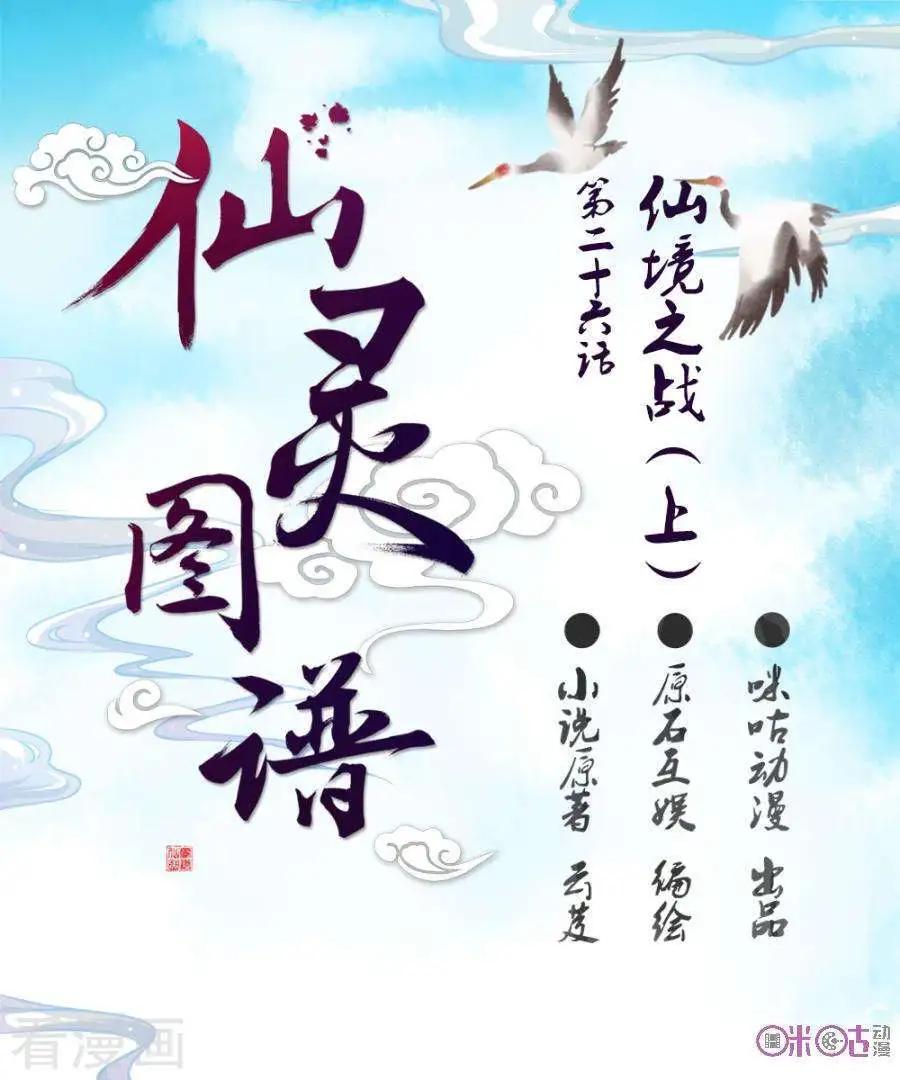 仙灵图谱
仙境之战（上）
第二十六话
咪咕动漫 出品
原石互娱 编绘
小说原著 云芨
看漫画
咪咕动漫